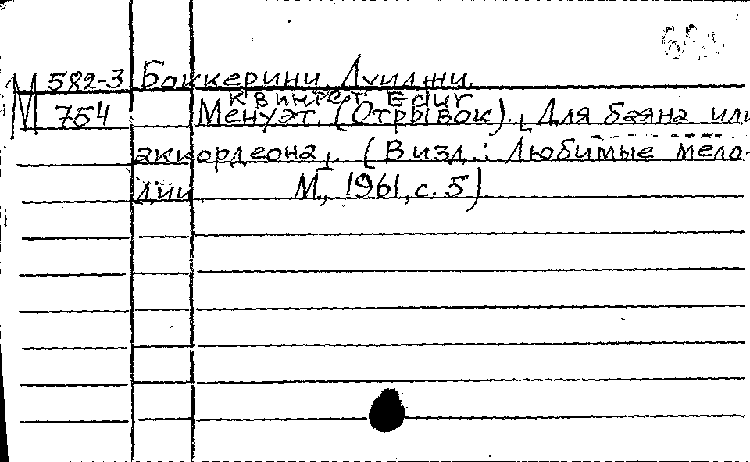 М 582-3 Боккерини, Луиджи.
квинтет E dur
754 Менуэт. (Отрывок). [Для баяна или
аккордеона]. (В изд.: Любимые мело-
дии М., 1961, с. 5)